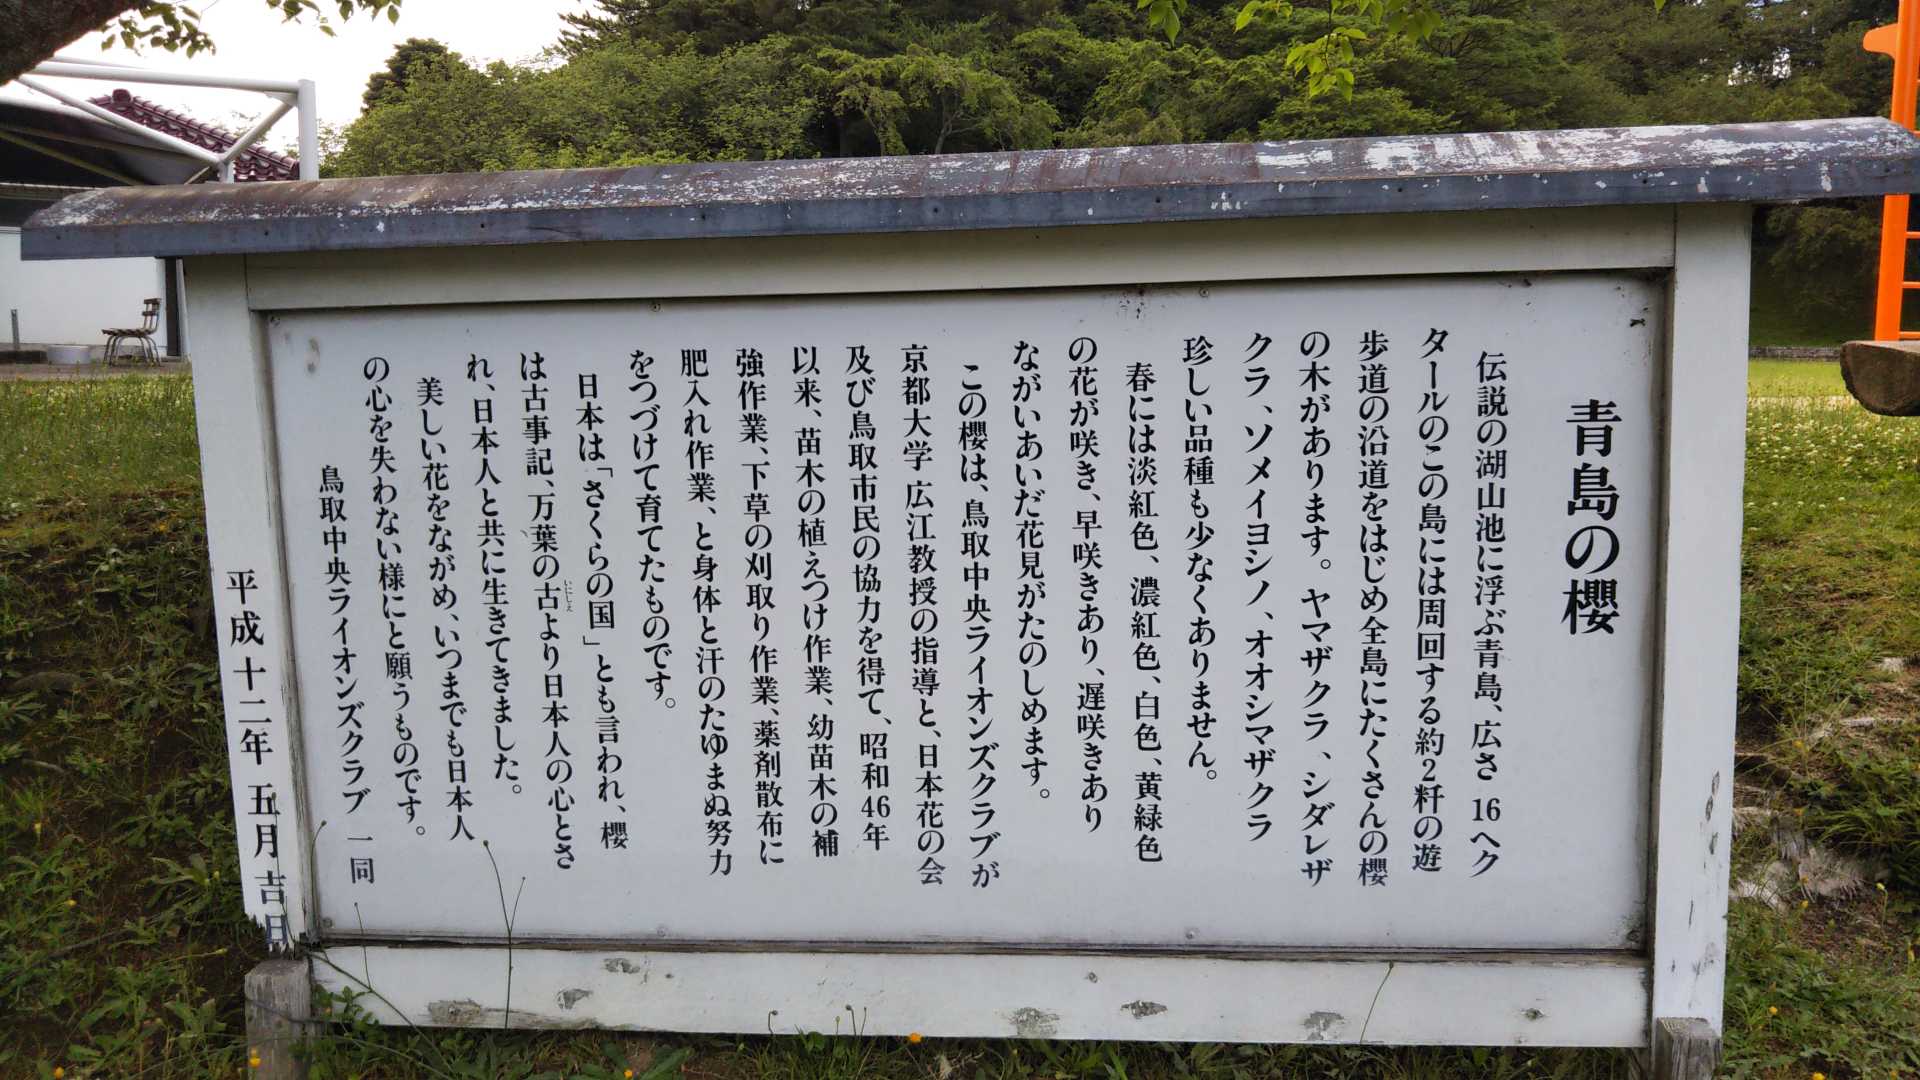 青島の櫻
伝説の湖山池に浮ぶ青島、広さ 16ヘク
タールのこの島には周回する約2粁の遊
歩道の沿道をはじめ全島にたくさんの櫻
の木があります。ヤマザクラ、シダレザ
クラ、ソメイヨシノ、オオシマザクラ
珍しい品種も少なくありません。
春には淡紅色、濃紅色、白色、黄緑色
の花が咲き、早咲きあり、遅咲きあり
ながいあいだ花見がたのしめます。
この櫻は、鳥取中央ライオンズクラブが
京都大学 広江教授の指導と、日本花の会
及び鳥取市民の協力を得て、昭和46年
以来、苗木の植えつけ作業、幼苗木の補
強作業、下草の刈取り作業、薬剤散布に
肥入れ作業、と身体と汗のたゆまぬ努力
をつづけて育てたものです。
日本は「さくらの国」とも言われ、櫻
は古事記、万葉の古より日本人の心とさ
いにしえ
れ、日本人と共に生きてきました。
美しい花をながめ、いつまでも日本人
の心を失わない様にと願うものです。
鳥取中央ライオンズクラブ 一同
平成十二年 五月 吉日